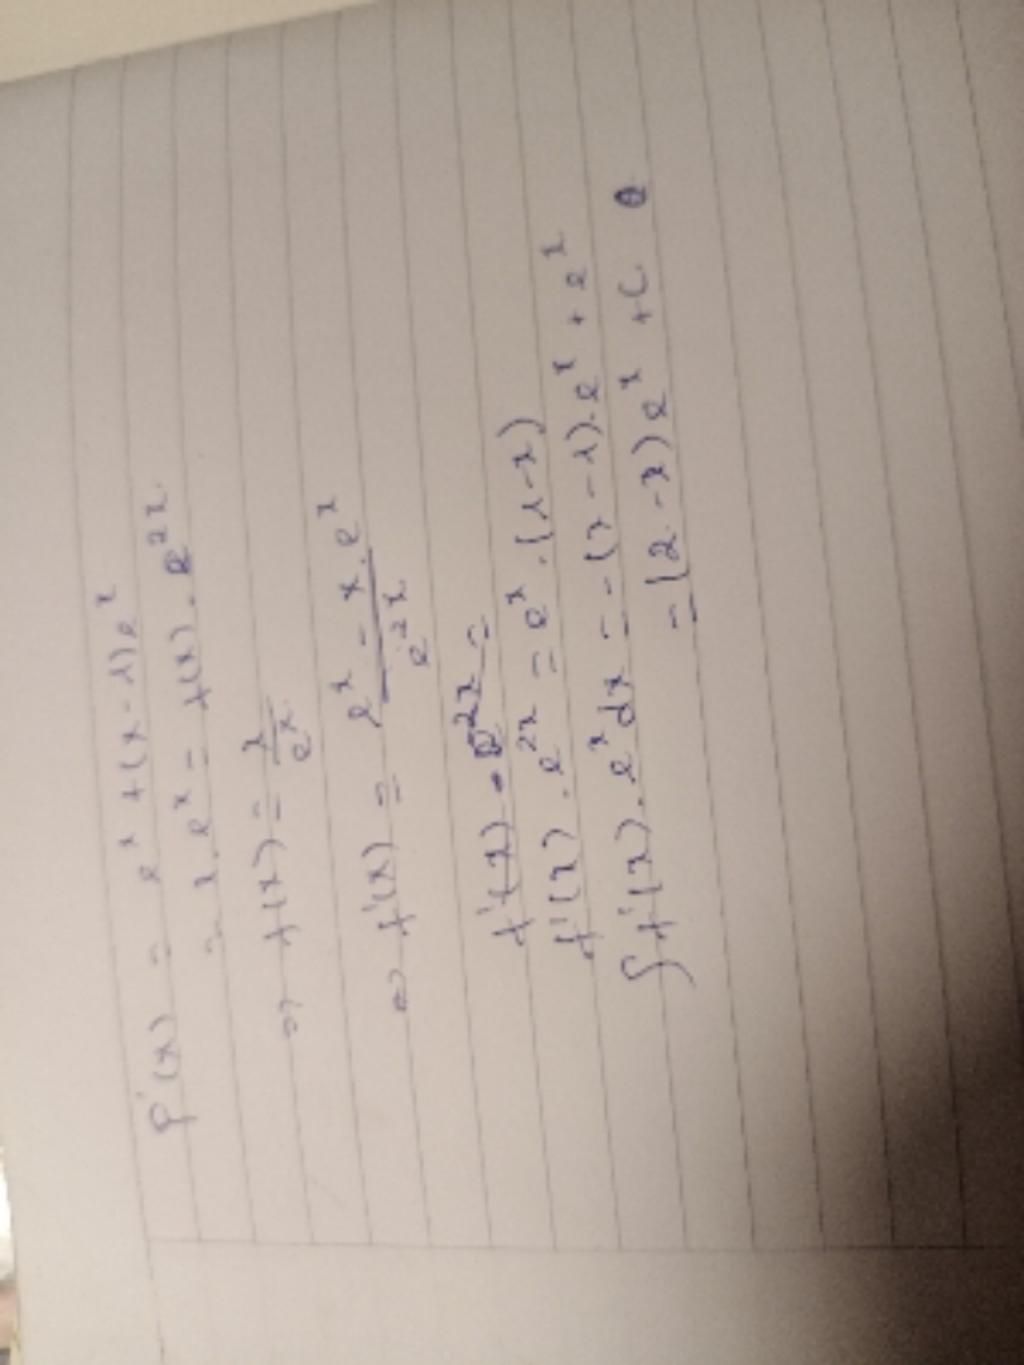 F'(x) = e^x + (x-1)e^x
= x.e^x = f(x).e^{2x}
=> f(x) = \frac{x}{e^x}
=> f'(x) = \frac{e^x - x.e^x}{e^{2x}}
f'(x) . e^{2x} =
f'(x).e^{2x} = e^x.(1-x)
∫f'(x).e^x dx = -(x-1).e^x + e^x
= (2-x)e^x + C